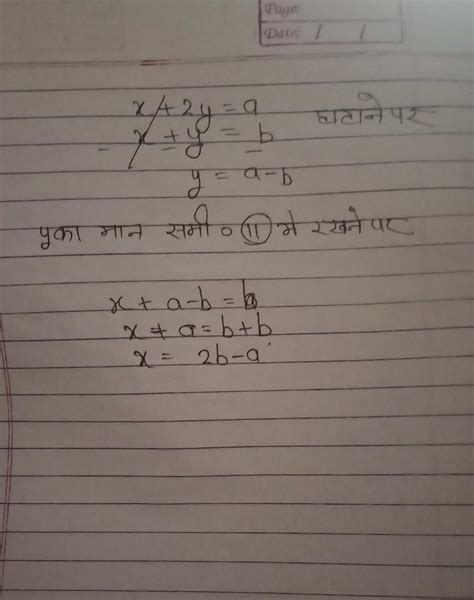 Page:
Date: / /
x + 2y = a घटाने पर
- x + y = b
- -
y = a-b
y का मान समी० (11) मे रखने पर
x + a-b = b
x + a = b+b
x = 2b-a